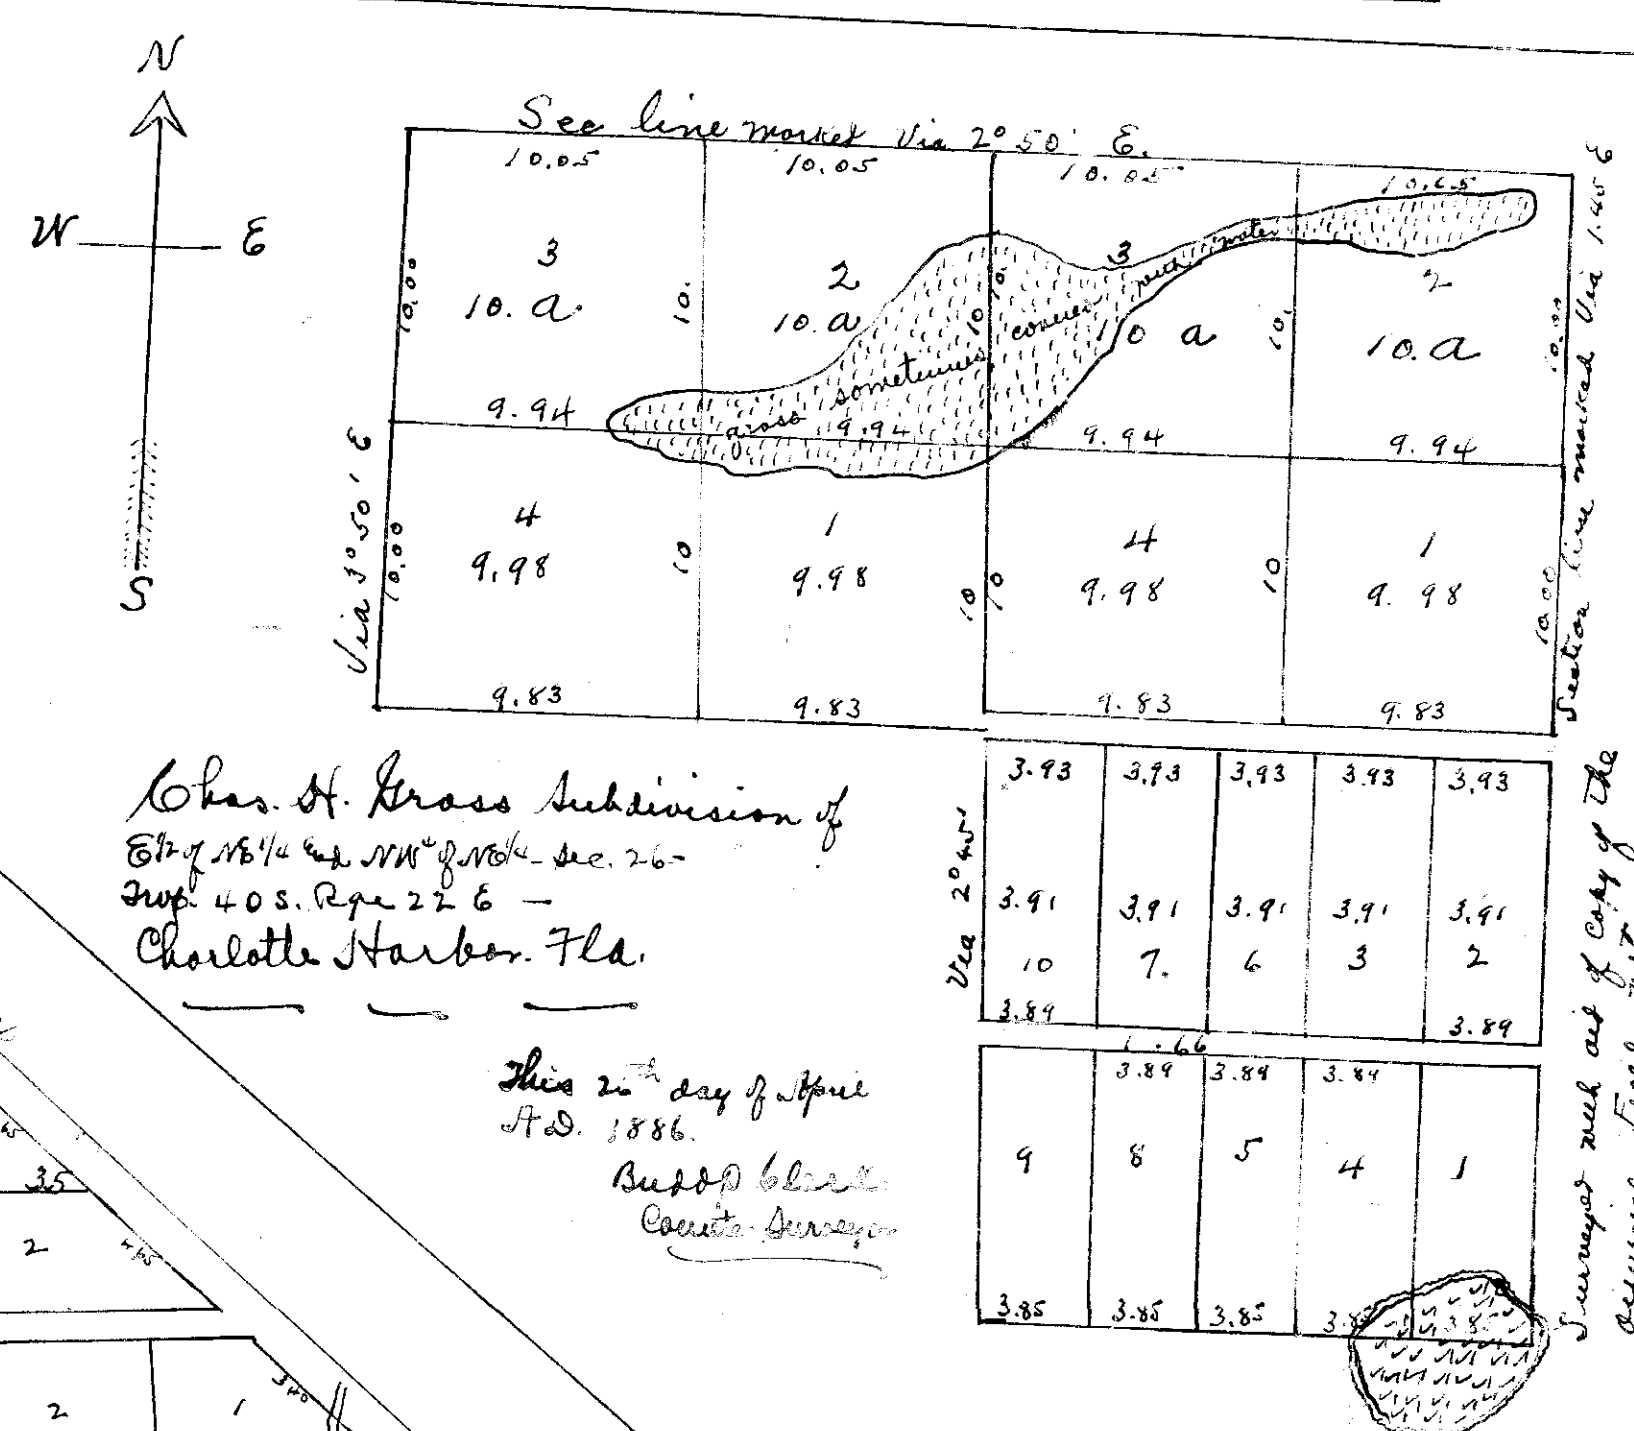 N
W E
S
Sec line marked Via 2° 50' E.
10.05 10.05 10.05 10.05
3 2 3 2
10.00 10. 10 10. 10. 10.00
10. a 10. a 10 a 10. a
Grass sometimes covered with water
9.94 9.94 9.94 9.94
Via 3° 50' E
4 1 4 1
10.00 10 10 10 10 10.00
9.98 9.98 9.98 9.98
9.83 9.83 9.83 9.83
Section line marked Via 1.45 E
Chas. H. Gross Subdivision of
E 1/2 of NE 1/4 and NW 4 of NE 1/4 - Sec. 26 -
Twp. 40 S. Rge 22 E —
Charlotte Harbor. Fla.
This 20th day of April
A.D. 1886.
County Surveyor
3.93 3.93 3.93 3.93 3.93
Via 2° 45'
3.91 3.91 3.91 3.91 3.91
10 7. 6 3 2
3.89 3.89
1.66
3.89 3.89 3.89
9 8 5 4 1
3.85 3.85 3.85 3.85 3.85
Surveyed with aid of Copy of the
35
2
2 1
340